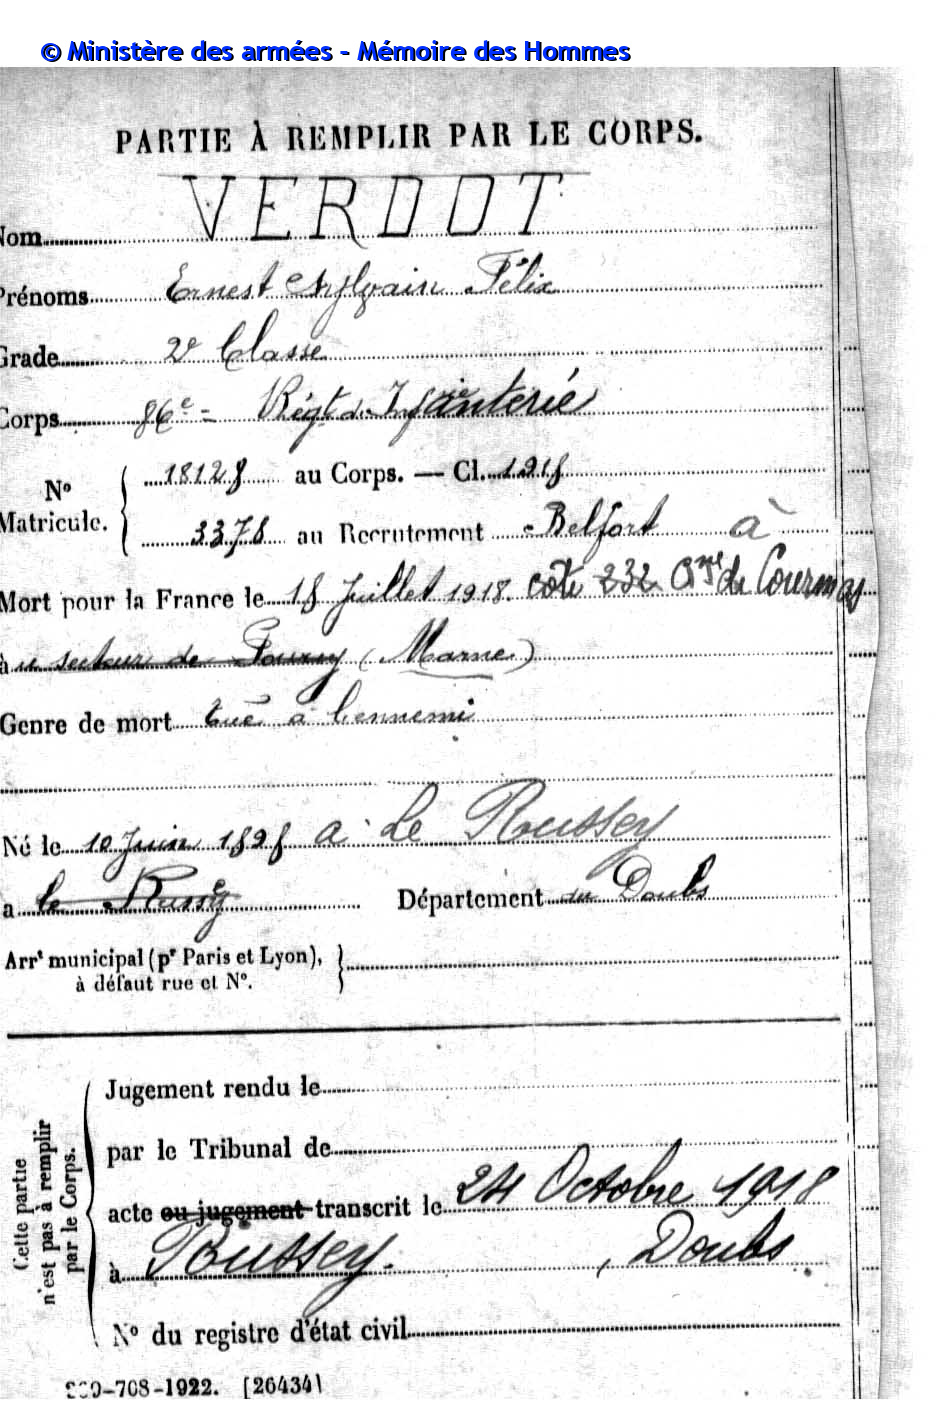 © Ministère des armées - Mémoire des Hommes
PARTIE À REMPLIR PAR LE CORPS.
Nom VERDOT
Prénoms Ernest Sylvain Félix
Grade 2e Classe
Corps 86e = Régt d'Infanterie
No Matricule. 18128 au Corps. — Cl. 1918
3378 au Recrutement Belfort à
Mort pour la France le 18 Juillet 1918. côte 232 de Courmas
au secteur de Pourcy (Marne)
Genre de mort tué à l'ennemi
Né le 10 Juin 1898 a Le Roussey
a le Russey Département du Doubs
Arrt municipal (pr Paris et Lyon),
à défaut rue et No.
Cette partie n'est pas à remplir par le Corps.
Jugement rendu le
par le Tribunal de
acte ou jugement transcrit le 24 Octobre 1918
à Roussey. , Doubs.
No du registre d'état civil
-708-1922. [26434]